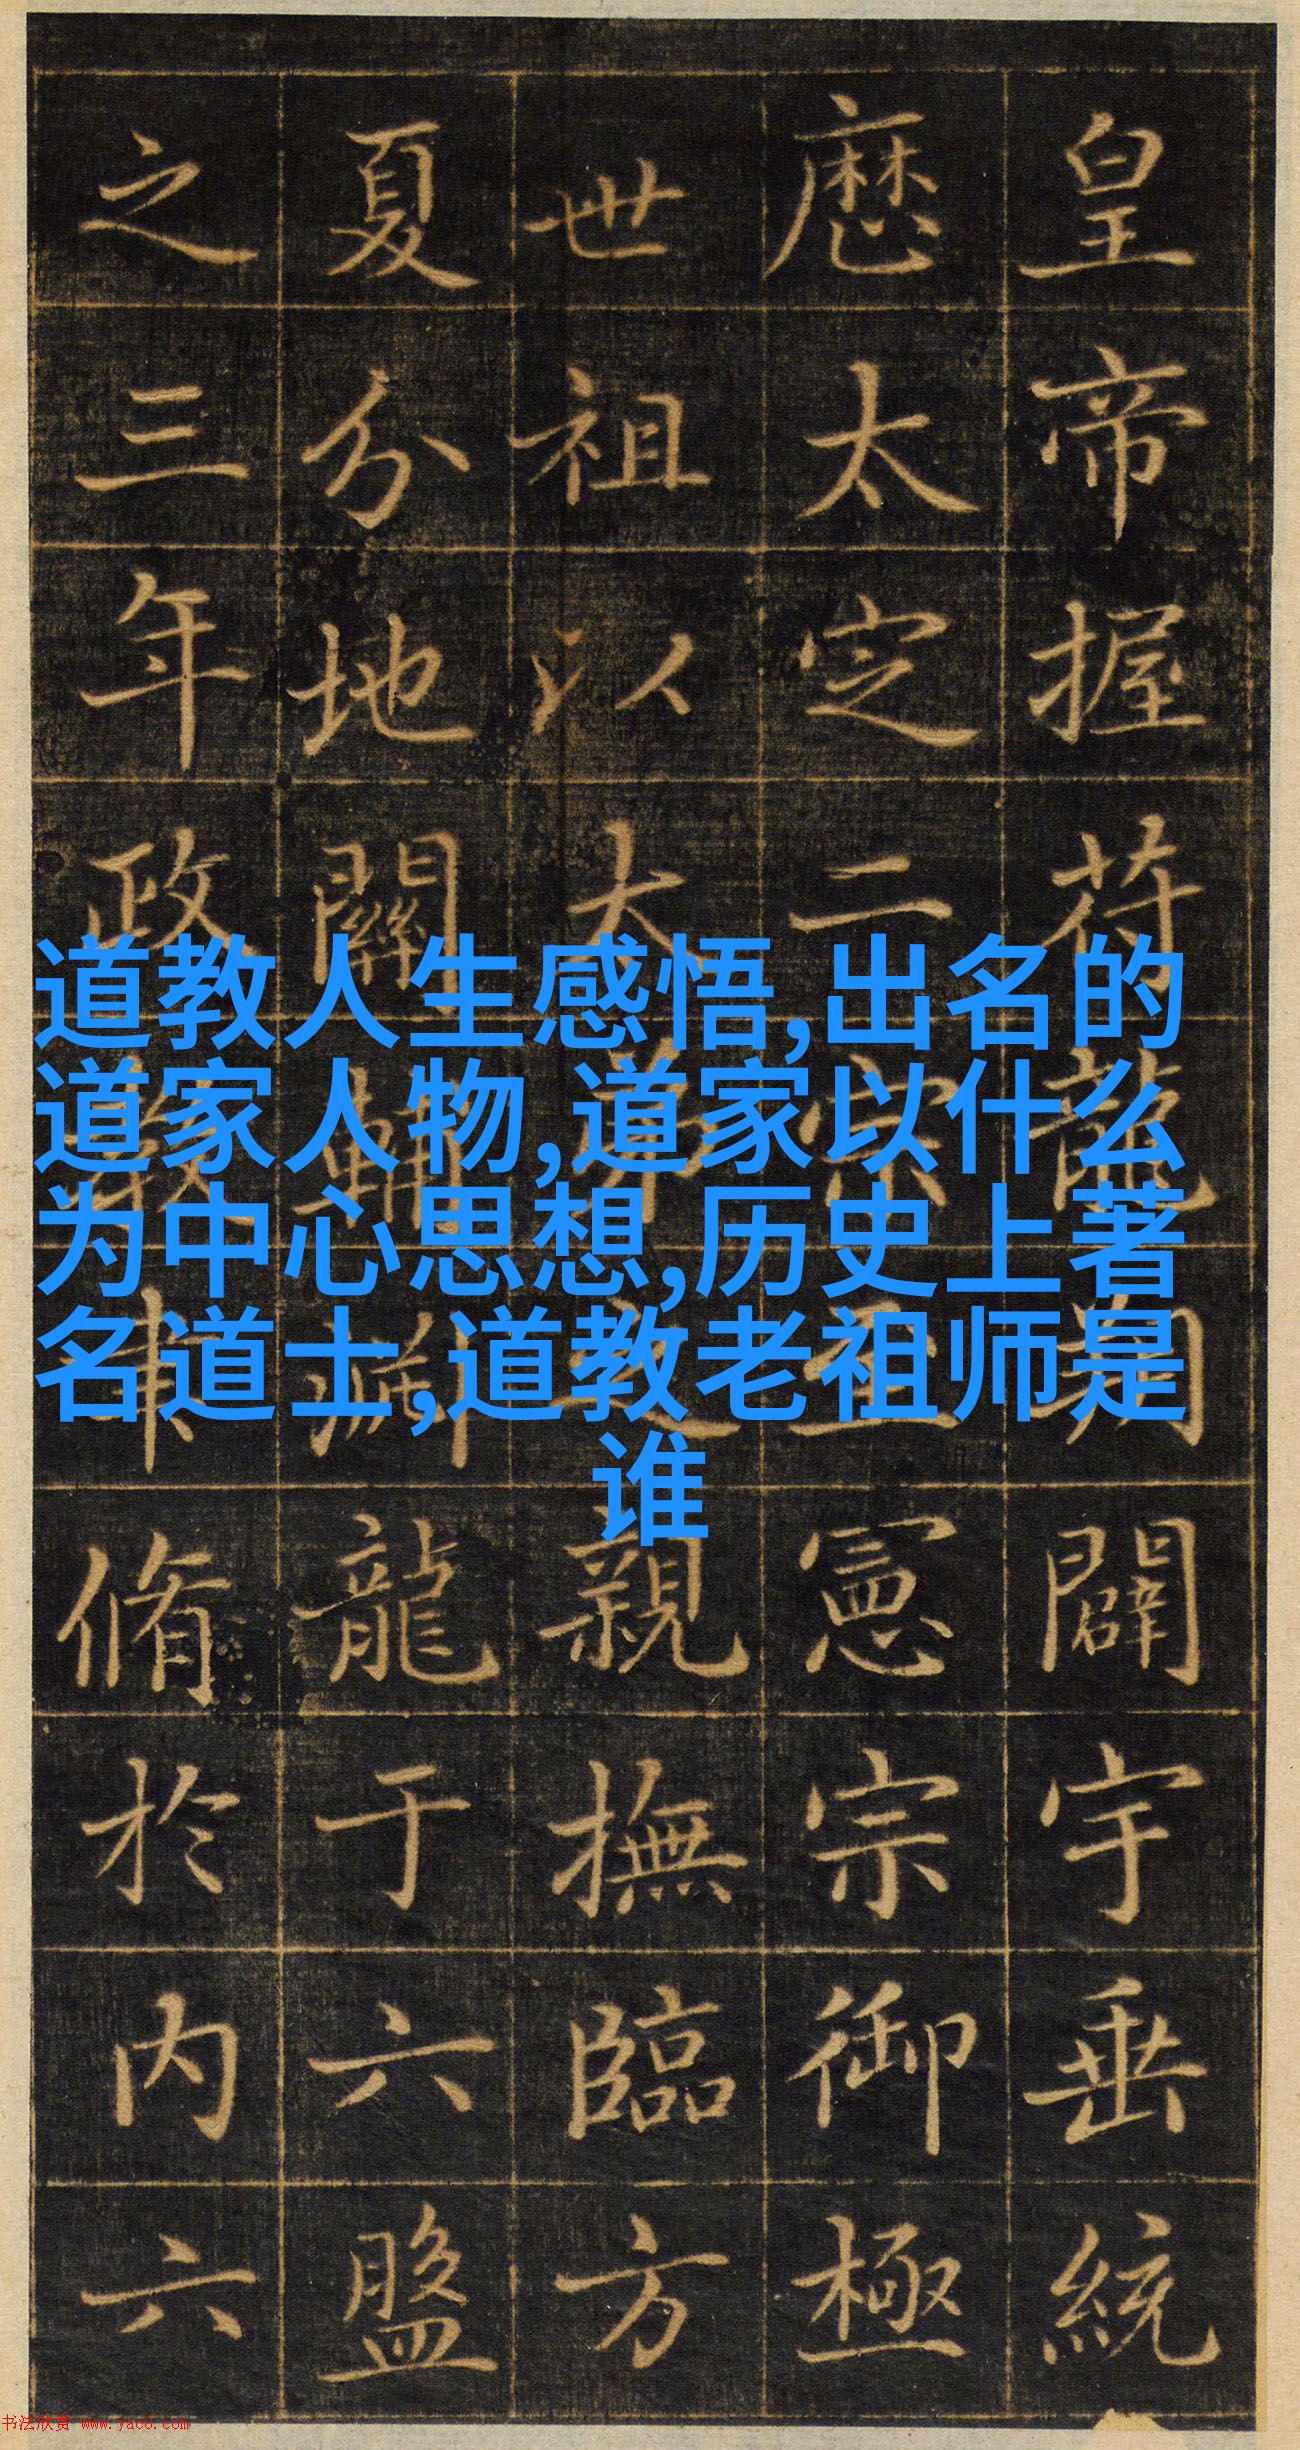 皇帝握符龍翔闢宇垂統
厯太定二宗至憲宗御極
世祖以大弟之親撫臨方
夏分地關輔龍于六盤
之三年政教聿脩於内六
道教人生感悟,出名的
道家人物,道家以什么
为中心思想,历史上著
名道士,道教老祖师是
谁
书法欣赏 www.yac8.com